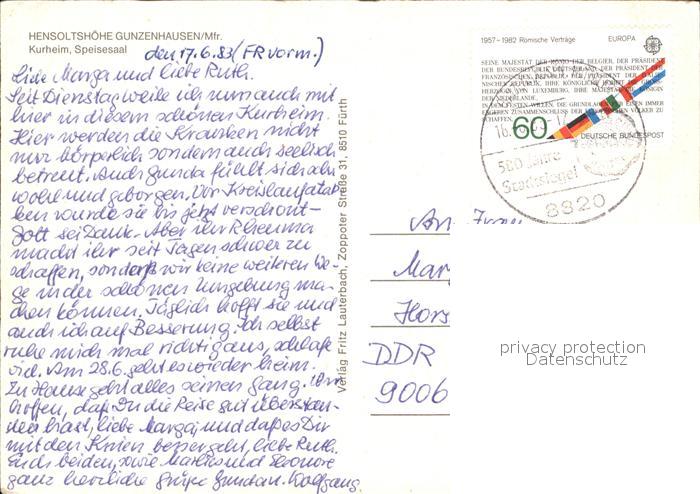 HENSOLTSHÖHE GUNZENHAUSEN/Mfr.
Kurheim, Speisesaal
den 17.6.83 (FR vorm.)
Liebe Marga und liebe Ruth.
Seit Dienstag weile ich nun auch mit
hier in diesem schönen Kurheim.
Hier werden die Kranken nicht
nur körperlich sondern auch seelisch
betreut. Auch Gunda fühlt sich sehr
wohl und geborgen. Vor Kreislaufattak-
ken wurde sie bis jetzt verschont –
Gott sei Dank. Aber ihr Rheuma
macht ihr seit Tagen schwer zu
schaffen, sodaß wir keine weiteren We-
ge in der schönen Umgebung ma-
chen können. Täglich hofft sie und
auch ich auf Besserung. Ich selbst
ruhe mich mal richtig aus, schlafe
viel. Am 28.6. geht es wieder heim.
Zu Hause geht alles seinen Gang. Wir
hoffen, daß Du die Reise gut überstan-
den hast, liebe Marga, und daß es Dir
mit den Knien besser geht, liebe Ruth.
Euch beiden, sowie Marlies und Leonore
ganz herzliche Grüße Gunda u. Wolfgang.
Verlag Fritz Lauterbach, Zoppoter Straße 31, 8510 Fürth
1957–1982 Römische Verträge EUROPA
SEINE MAJESTÄT DER KÖNIG DER BELGIER, DER PRÄSIDENT
DER BUNDESREPUBLIK DEUTSCHLAND, DER PRÄSIDENT DER
FRANZÖSISCHEN REPUBLIK, DER PRÄSIDENT DER ITALIE-
NISCHEN REPUBLIK, IHRE KÖNIGLICHE HOHEIT DIE GROSS-
HERZOGIN VON LUXEMBURG, IHRE MAJESTÄT DIE KÖNIGIN
DER NIEDERLANDE,
IN DEM FESTEN WILLEN, DIE GRUNDLAGEN FÜR EINEN IMMER
ENGEREN ZUSAMMENSCHLUSS DER EUROPÄISCHEN VÖLKER ZU
SCHAFFEN
60
DEUTSCHE BUNDESPOST
500 Jahre
Stadtsiegel
8820
An Frau
Mar
Hors
DDR
9006
privacy protection
Datenschutz